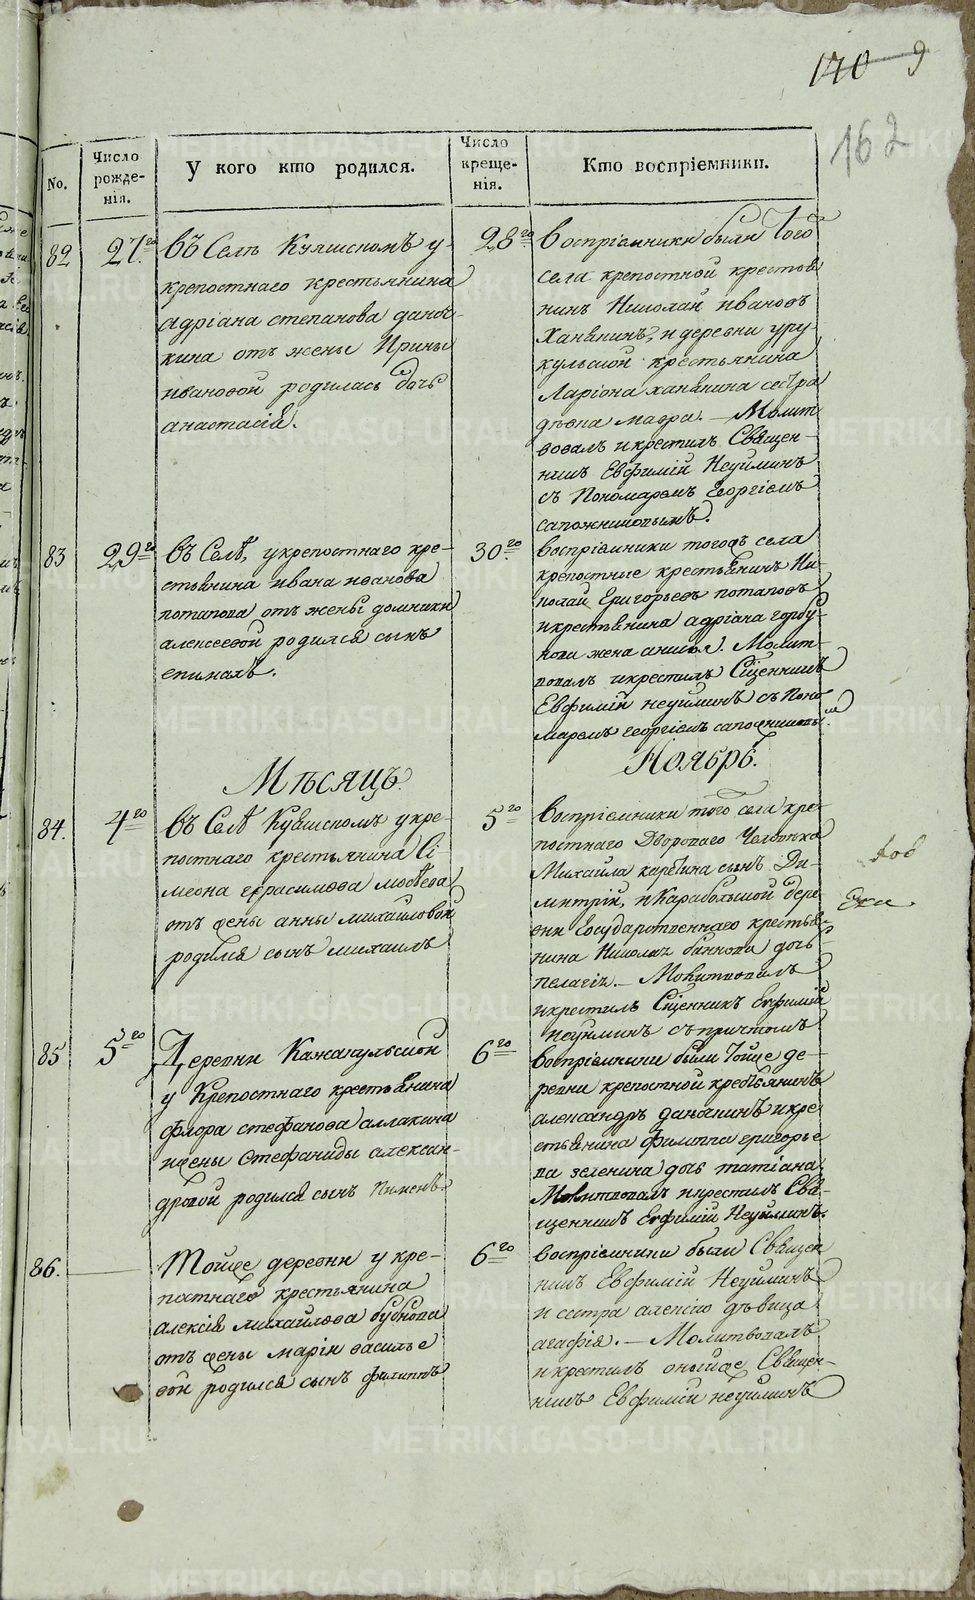 140 9
162
No.
Число рожде-нія.
У кого кто родился.
Число креще-нія.
Кто воспріемники.
82
27го
въ Селѣ Куяшскомъ у
крепостнаго крестьянина
адріана степанова даны-
кина отъ жены Ирины
ивановой родилась дочь
анастасія.
28го
воспріемники были Того
села крепостной крестья
нинъ Николай ивановъ
Ханянинъ, и деревни уру-
кульской крестьянина
Ларіона ханянина сестра
дѣвка мавра. — Молит
вовалъ и крестилъ Священ-
никъ Евфимій Неуйминъ
съ Пономаремъ Георгіемъ
сапожниковымъ.
83
29го
въ Селѣ, у крепостнаго кре-
стьянина ивана иванова
потапова отъ жены домники
алексеевой родился сынъ
епимахъ.
30го
воспріемники тогожъ села
крепостные крестьянинъ Ни-
колай Григорьевъ потаповъ
и крестьянина адріана горбу-
нова жена анисья. Молит-
вовалъ и крестилъ Сщенникъ
Евфимій неуйминъ съ Поно-
маремъ георгіемъ сапожниковы
Мѣсяцъ
Ноябрь.
84.
4го
въ Селѣ Куяшскомъ у кре-
постнаго крестьянина Си-
меона герасимова
отъ жены анны михайловой
родился сынъ михаилъ
5го
воспріемники того села кре-
постнаго Двороваго Человека
Михайла карѣтина сынъ Ди-
митрій, и Карабольской дере
вни Государственнаго крестья-
нина Николая банкова дочь
пелагія. — Молитвовалъ
и крестилъ Сщенникъ Евфимій
неуйминъ съ причтомъ
85
5го
Деревни Кажакульской
у Крепостнаго крестьянина
флора стефанова аллакина
и жены Стефаниды алексан-
дровой родился сынъ Пименъ.
6го
воспріемники были Тойже де-
ревни крепостной крестьянинъ
александръ даныкинъ и кре-
стьянина филиппа григорье
ва зеленина дочь татіана.
Молитвовалъ и крестилъ Свя-
щенникъ Евфимій Неуйминъ.
86.
Тойже деревни у кре-
постнаго крестьянина
алексія михайлова бубнова
отъ жены маріи василье
вой родился сынъ филиппъ
6го
воспріемники были Священ
никъ Евфимій Неуйминъ
и сестра алексію дѣвица
агафія. — Молитвовалъ
и крестилъ онымже Священ-
никъ Евфимій неуйминъ
METRIKI.GASO-URAL.RU